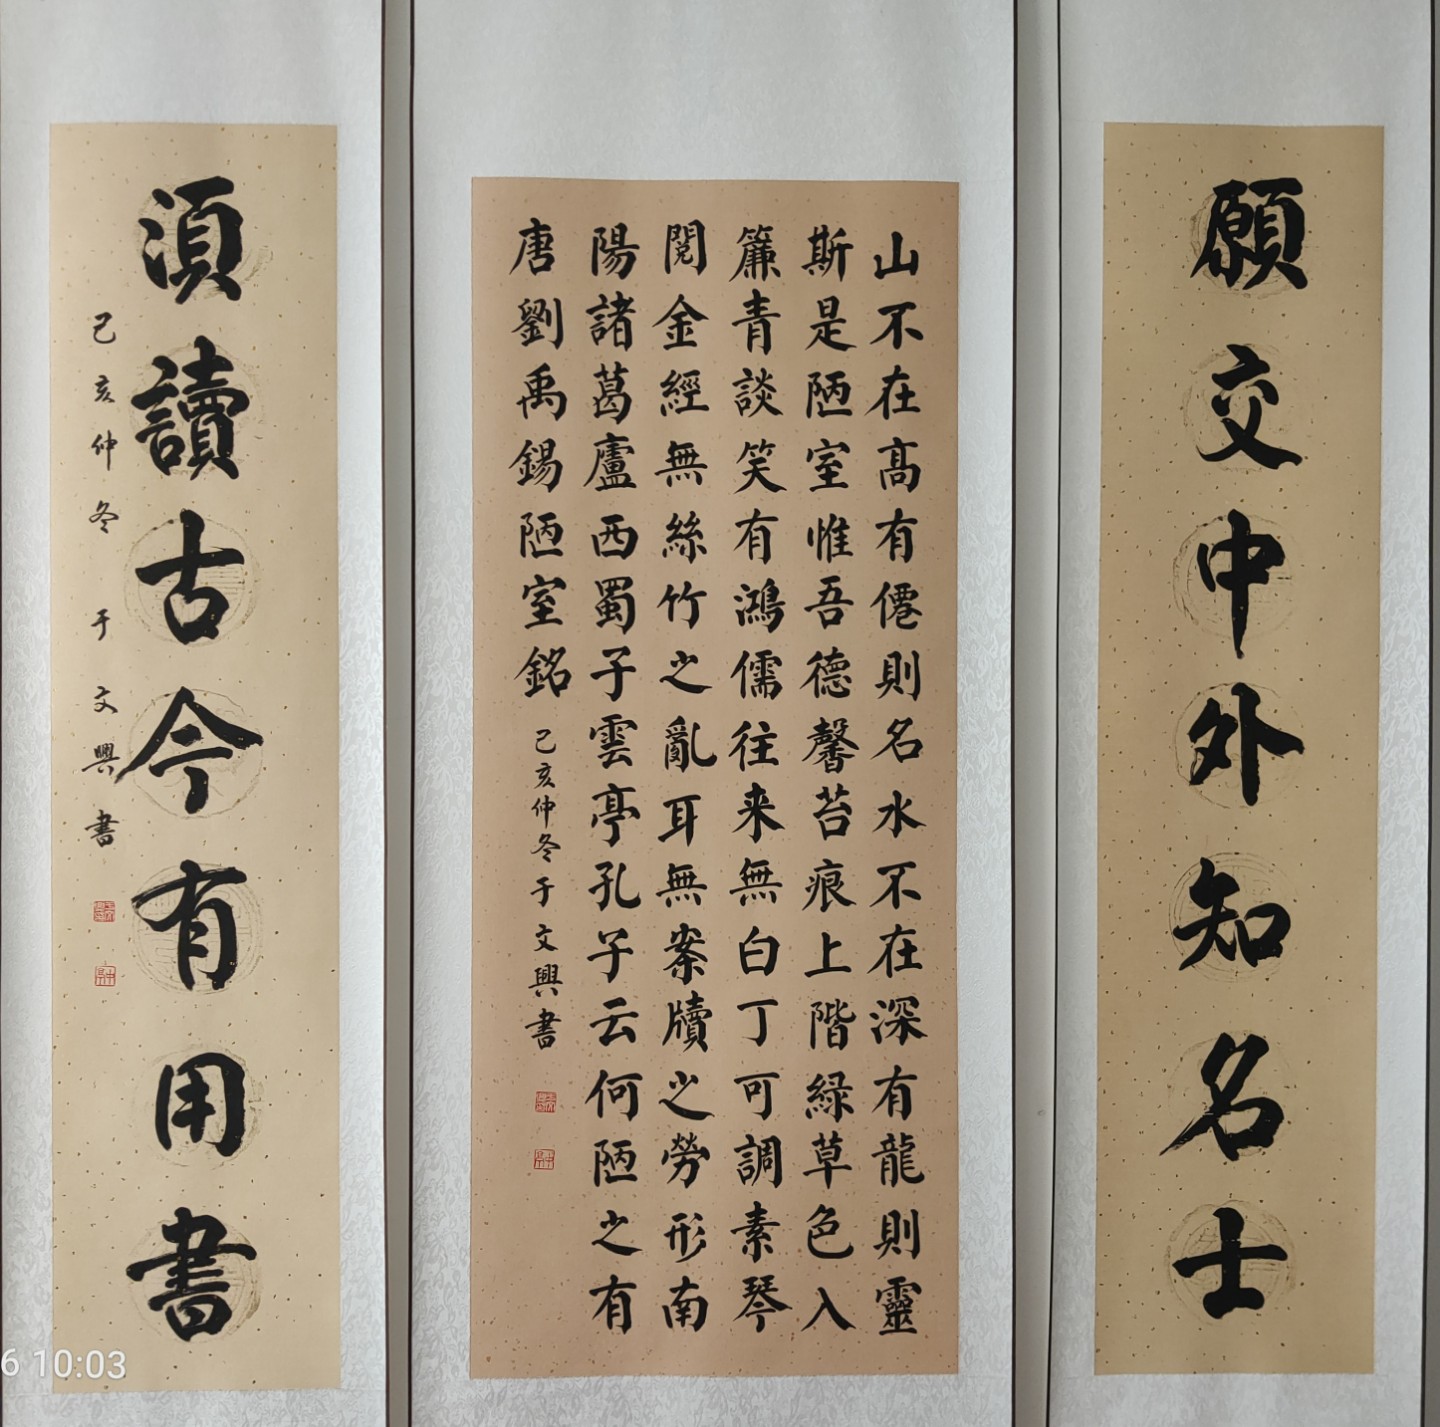 願交中外知名士
山不在高有僊則名水不在深有龍則靈
斯是陋室惟吾德馨苔痕上階緑草色入
簾青談笑有鴻儒往来無白丁可調素琴
閲金經無絲竹之亂耳無案牘之勞形南
陽諸葛廬西蜀子雲亭孔子云何陋之有
唐劉禹錫陋室銘
己亥仲冬于文興書
須讀古今有用書
己亥仲冬于文興書
6 10:03